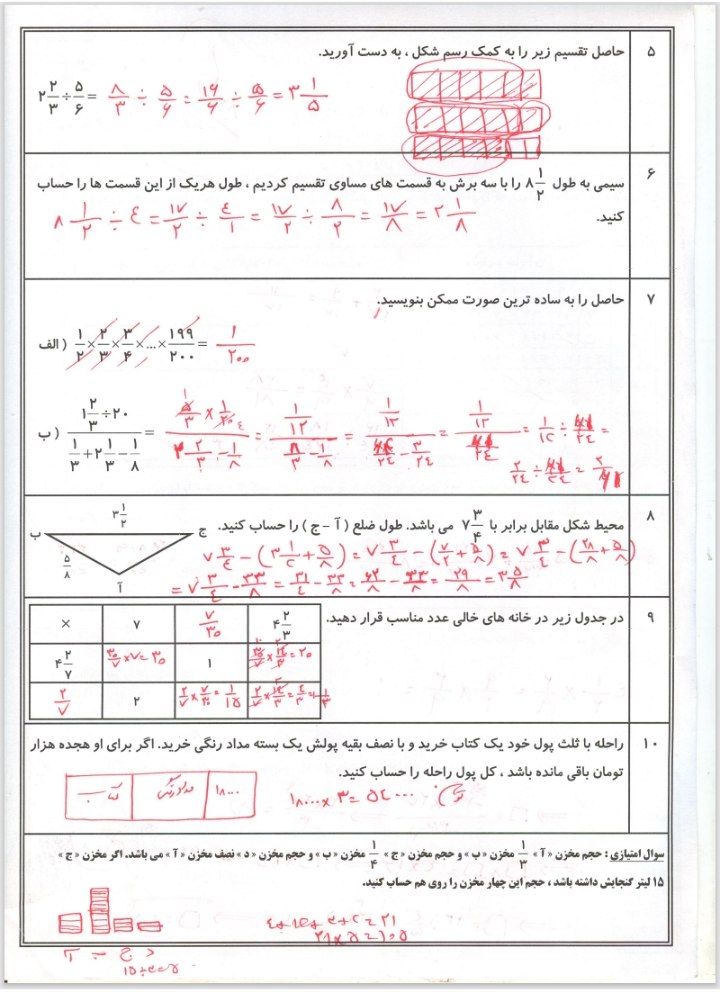 ۵ حاصل تقسیم زیر را به کمک رسم شکل ، به دست آورید.
۲ ۲/۳ ÷ ۵/۶ = ۸/۳ ÷ ۵/۶ = ۱۶/۶ ÷ ۵/۶ = ۳ ۱/۵
۶ سیمی به طول ۸ ۱/۲ را با سه برش به قسمت های مساوی تقسیم کردیم ، طول هریک از این قسمت ها را حساب
کنید.
۸ ۱/۲ ÷ ۴ = ۱۷/۲ ÷ ۴/۱ = ۱۷/۲ ÷ ۸/۲ = ۱۷/۸ = ۲ ۱/۸
۷ حاصل را به ساده ترین صورت ممکن بنویسید.
الف ) ۱/۲ × ۲/۳ × ۳/۴ × ... × ۱۹۹/۲۰۰ = ۱/۲۰۰
ب ) (۱ ۲/۳ ÷ ۲۰) / (۱/۳ + ۲ ۱/۳ − ۱/۸) =
۸ محیط شکل مقابل برابر با ۷ ۳/۴ می باشد. طول ضلع ( آ - ج ) را حساب کنید.
۳ ۱/۲
ب ج
۵/۸
آ
۷ ۳/۴ − (۳ ۱/۲ + ۵/۸) = ۷ ۳/۴ − (۷/۲ + ۵/۸) = ۷ ۳/۴ − (۲۸/۸ + ۵/۸)
= ۷ ۳/۴ − ۳۳/۸ = ۳۱/۴ − ۳۳/۸ = ۶۲/۸ − ۳۳/۸ = ۲۹/۸ = ۳ ۵/۸
۹ در جدول زیر در خانه های خالی عدد مناسب قرار دهید.
× ۷ ۷/۳۰ ۴ ۲/۳
۴ ۲/۷ ۳۰/۷ × ۷ = ۳۰ ۱ ۳۰/۷ × ۱۴/۳ = ۲۰
۲/۷ ۲ ۲/۷ × ۷/۳۰ = ۱/۱۵ ۲/۷ × ۱۴/۳ = ۴/۳ = ۱ ۱/۳
۱۰ راحله با ثلث پول خود یک کتاب خرید و با نصف بقیه پولش یک بسته مداد رنگی خرید. اگر برای او هجده هزار
تومان باقی مانده باشد ، کل پول راحله را حساب کنید.
کتاب مدادرنگی ۱۸۰۰۰
۱۸۰۰۰ × ۳ = ۵۴۰۰۰
سوال امتیازی : حجم مخزن « آ » ۱/۳ مخزن « ب » و حجم مخزن « ج » ۱/۴ مخزن « ب » و حجم مخزن « د » نصف مخزن « آ » می باشد. اگر مخزن « ج »
۱۵ لیتر گنجایش داشته باشد ، حجم این چهار مخزن را روی هم حساب کنید.
۴+۱۲+۳+۲=۲۱
۲۱×۵=۱۰۵
آ ب ج د
۱۵÷۳=۵